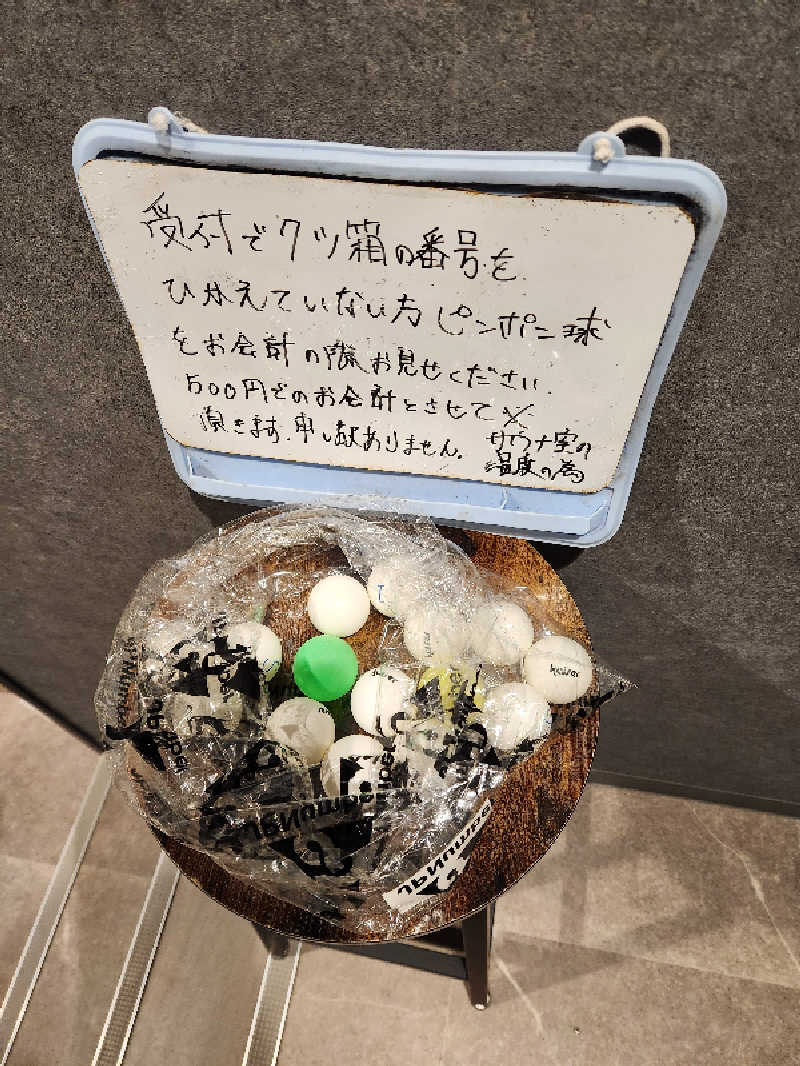 受付でクツ箱の番号を
ひかえていない方 ピンポン球
をお会計の際お見せください.
500円でのお会計とさせて
頂きます.申し訳ありません.
サウナ室の
温度の為